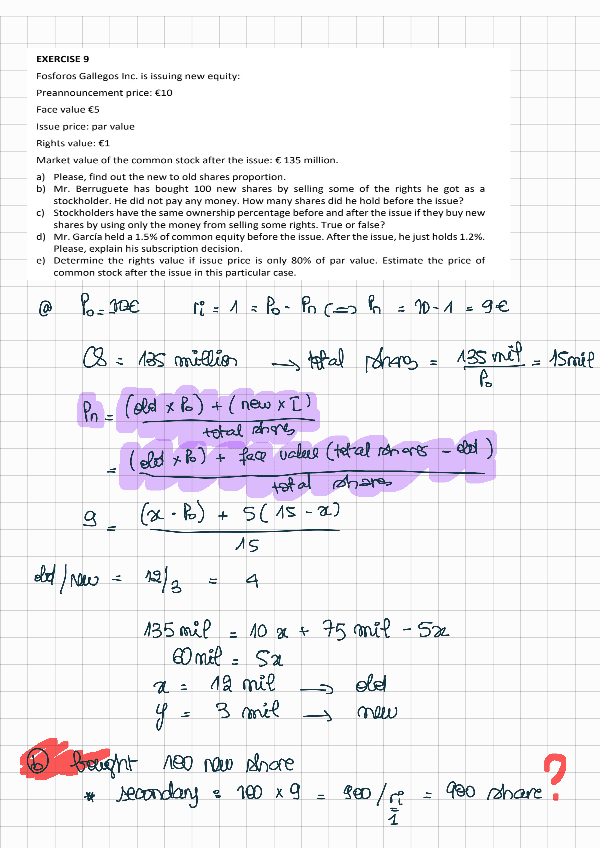 EXERCISE 9
Fosforos Gallegos Inc. is issuing new equity:
Preannouncement price: €10
Face value €5
Issue price: par value
Rights value: €1
Market value of the common stock after the issue: € 135 million.
a) Please, find out the new to old shares proportion.
b) Mr. Berruguete has bought 100 new shares by selling some of the rights he got as a
stockholder. He did not pay any money. How many shares did he hold before the issue?
c) Stockholders have the same ownership percentage before and after the issue if they buy new
shares by using only the money from selling some rights. True or false?
d) Mr. García held a 1.5% of common equity before the issue. After the issue, he just holds 1.2%.
Please, explain his subscription decision.
e) Determine the rights value if issue price is only 80% of par value. Estimate the price of
common stock after the issue in this particular case.
@ P₀ = 10€ ri = 1 = P₀ - Pn <=> Pn = 10 - 1 = 9€
CS = 135 million → total shares = 135 mil / P₀ = 15 mil
Pn = (old × P₀) + (new × I) / total shares
= (old × P₀) + face value (total shares - old) / total shares
9 = (x · P₀) + 5(15 - x) / 15
old/new = 12/3 = 4
135 mil = 10x + 75 mil - 5x
60 mil = 5x
x = 12 mil → old
y = 3 mil → new
ⓑ bought 100 new share
* secondary = 100 × 9 = 900 / ri = 900 share ?
= 1